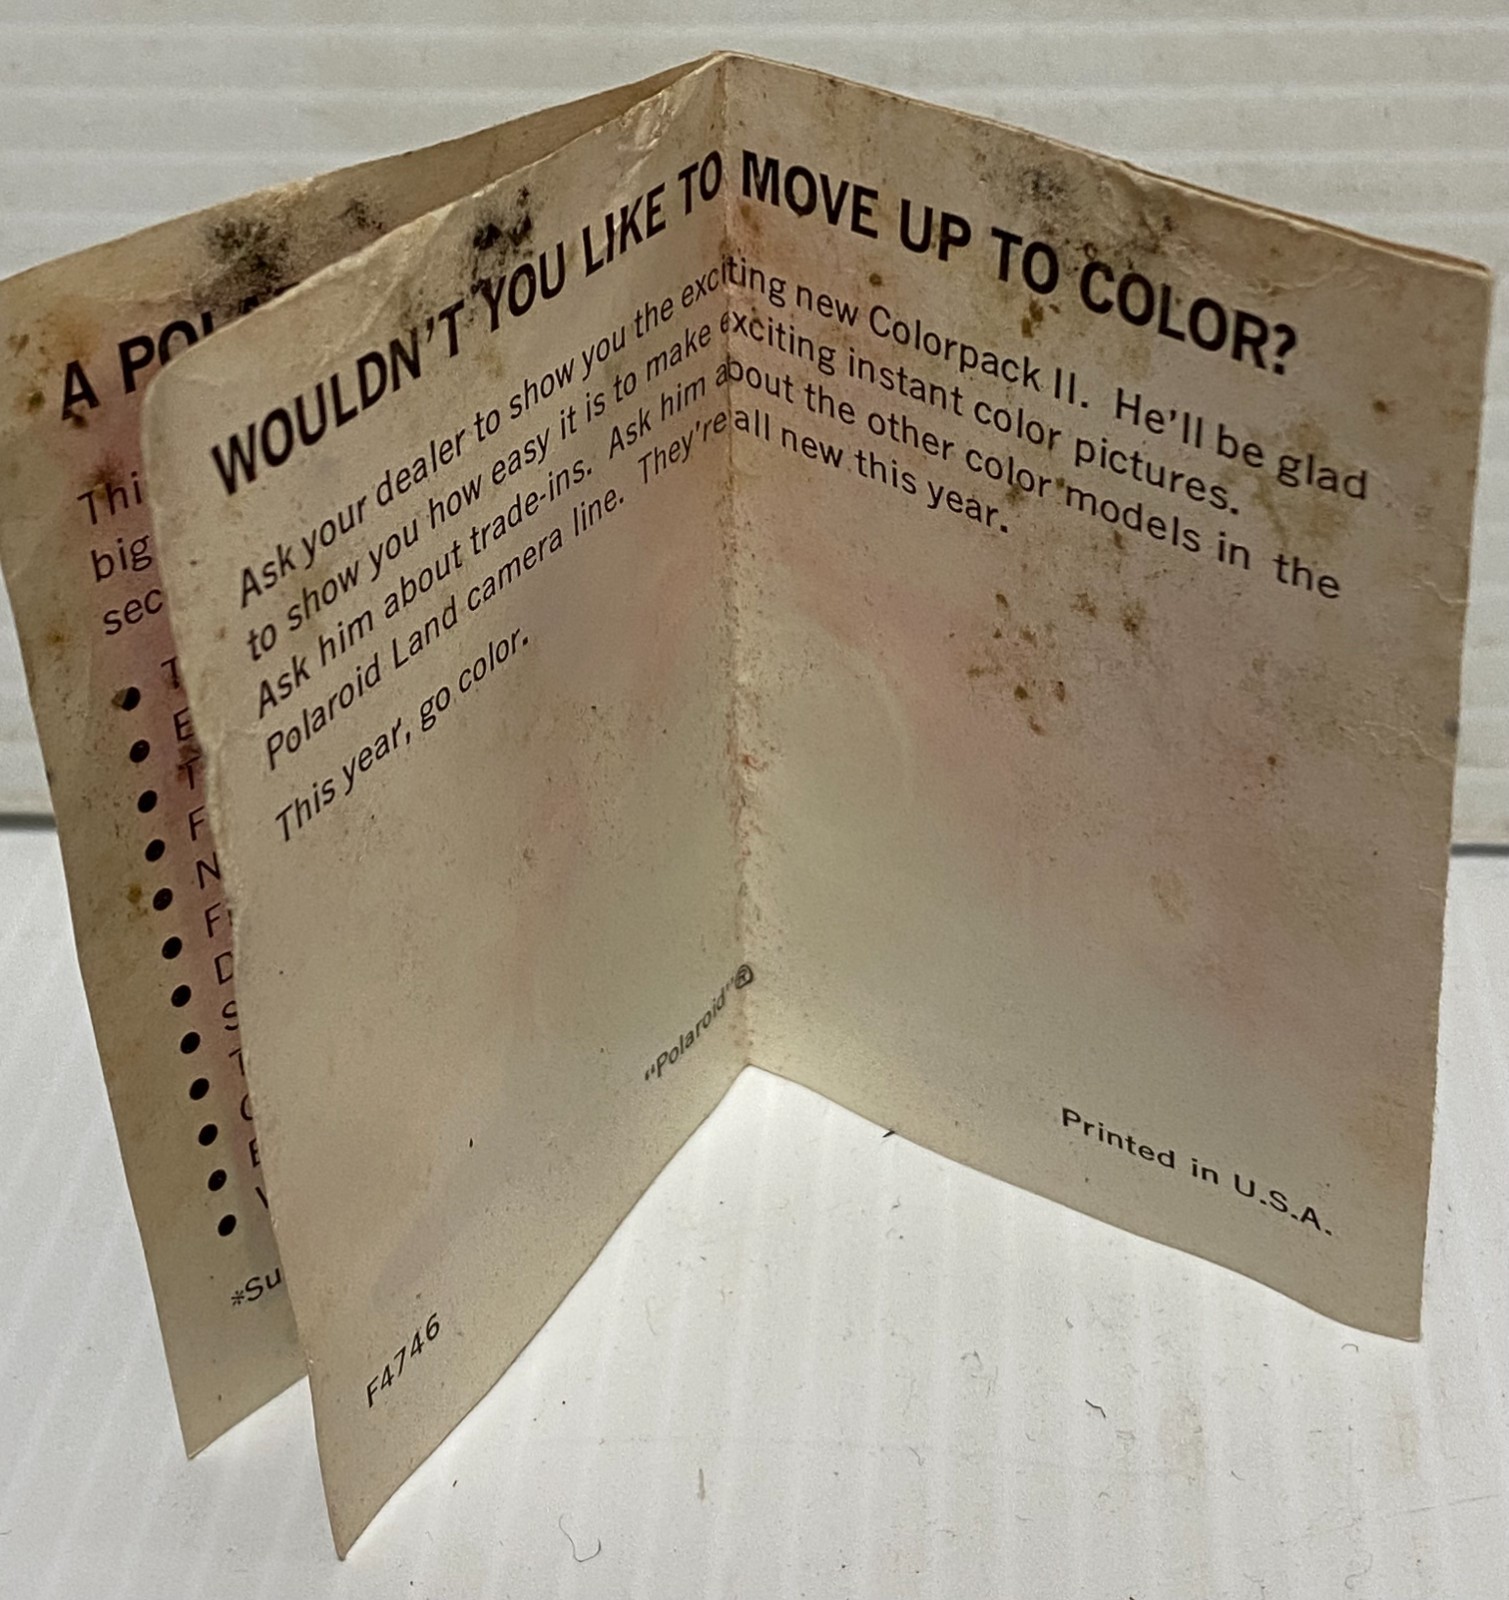 WOULDN'T YOU LIKE TO MOVE UP TO COLOR?
Ask your dealer to show you the exciting new Colorpack II. He'll be glad
to show you how easy it is to make exciting instant color pictures.
Ask him about trade-ins. Ask him about the other color models in the
Polaroid Land camera line. They're all new this year.
This year, go color.
"Polaroid"®
Printed in U.S.A.
F4746
A
big